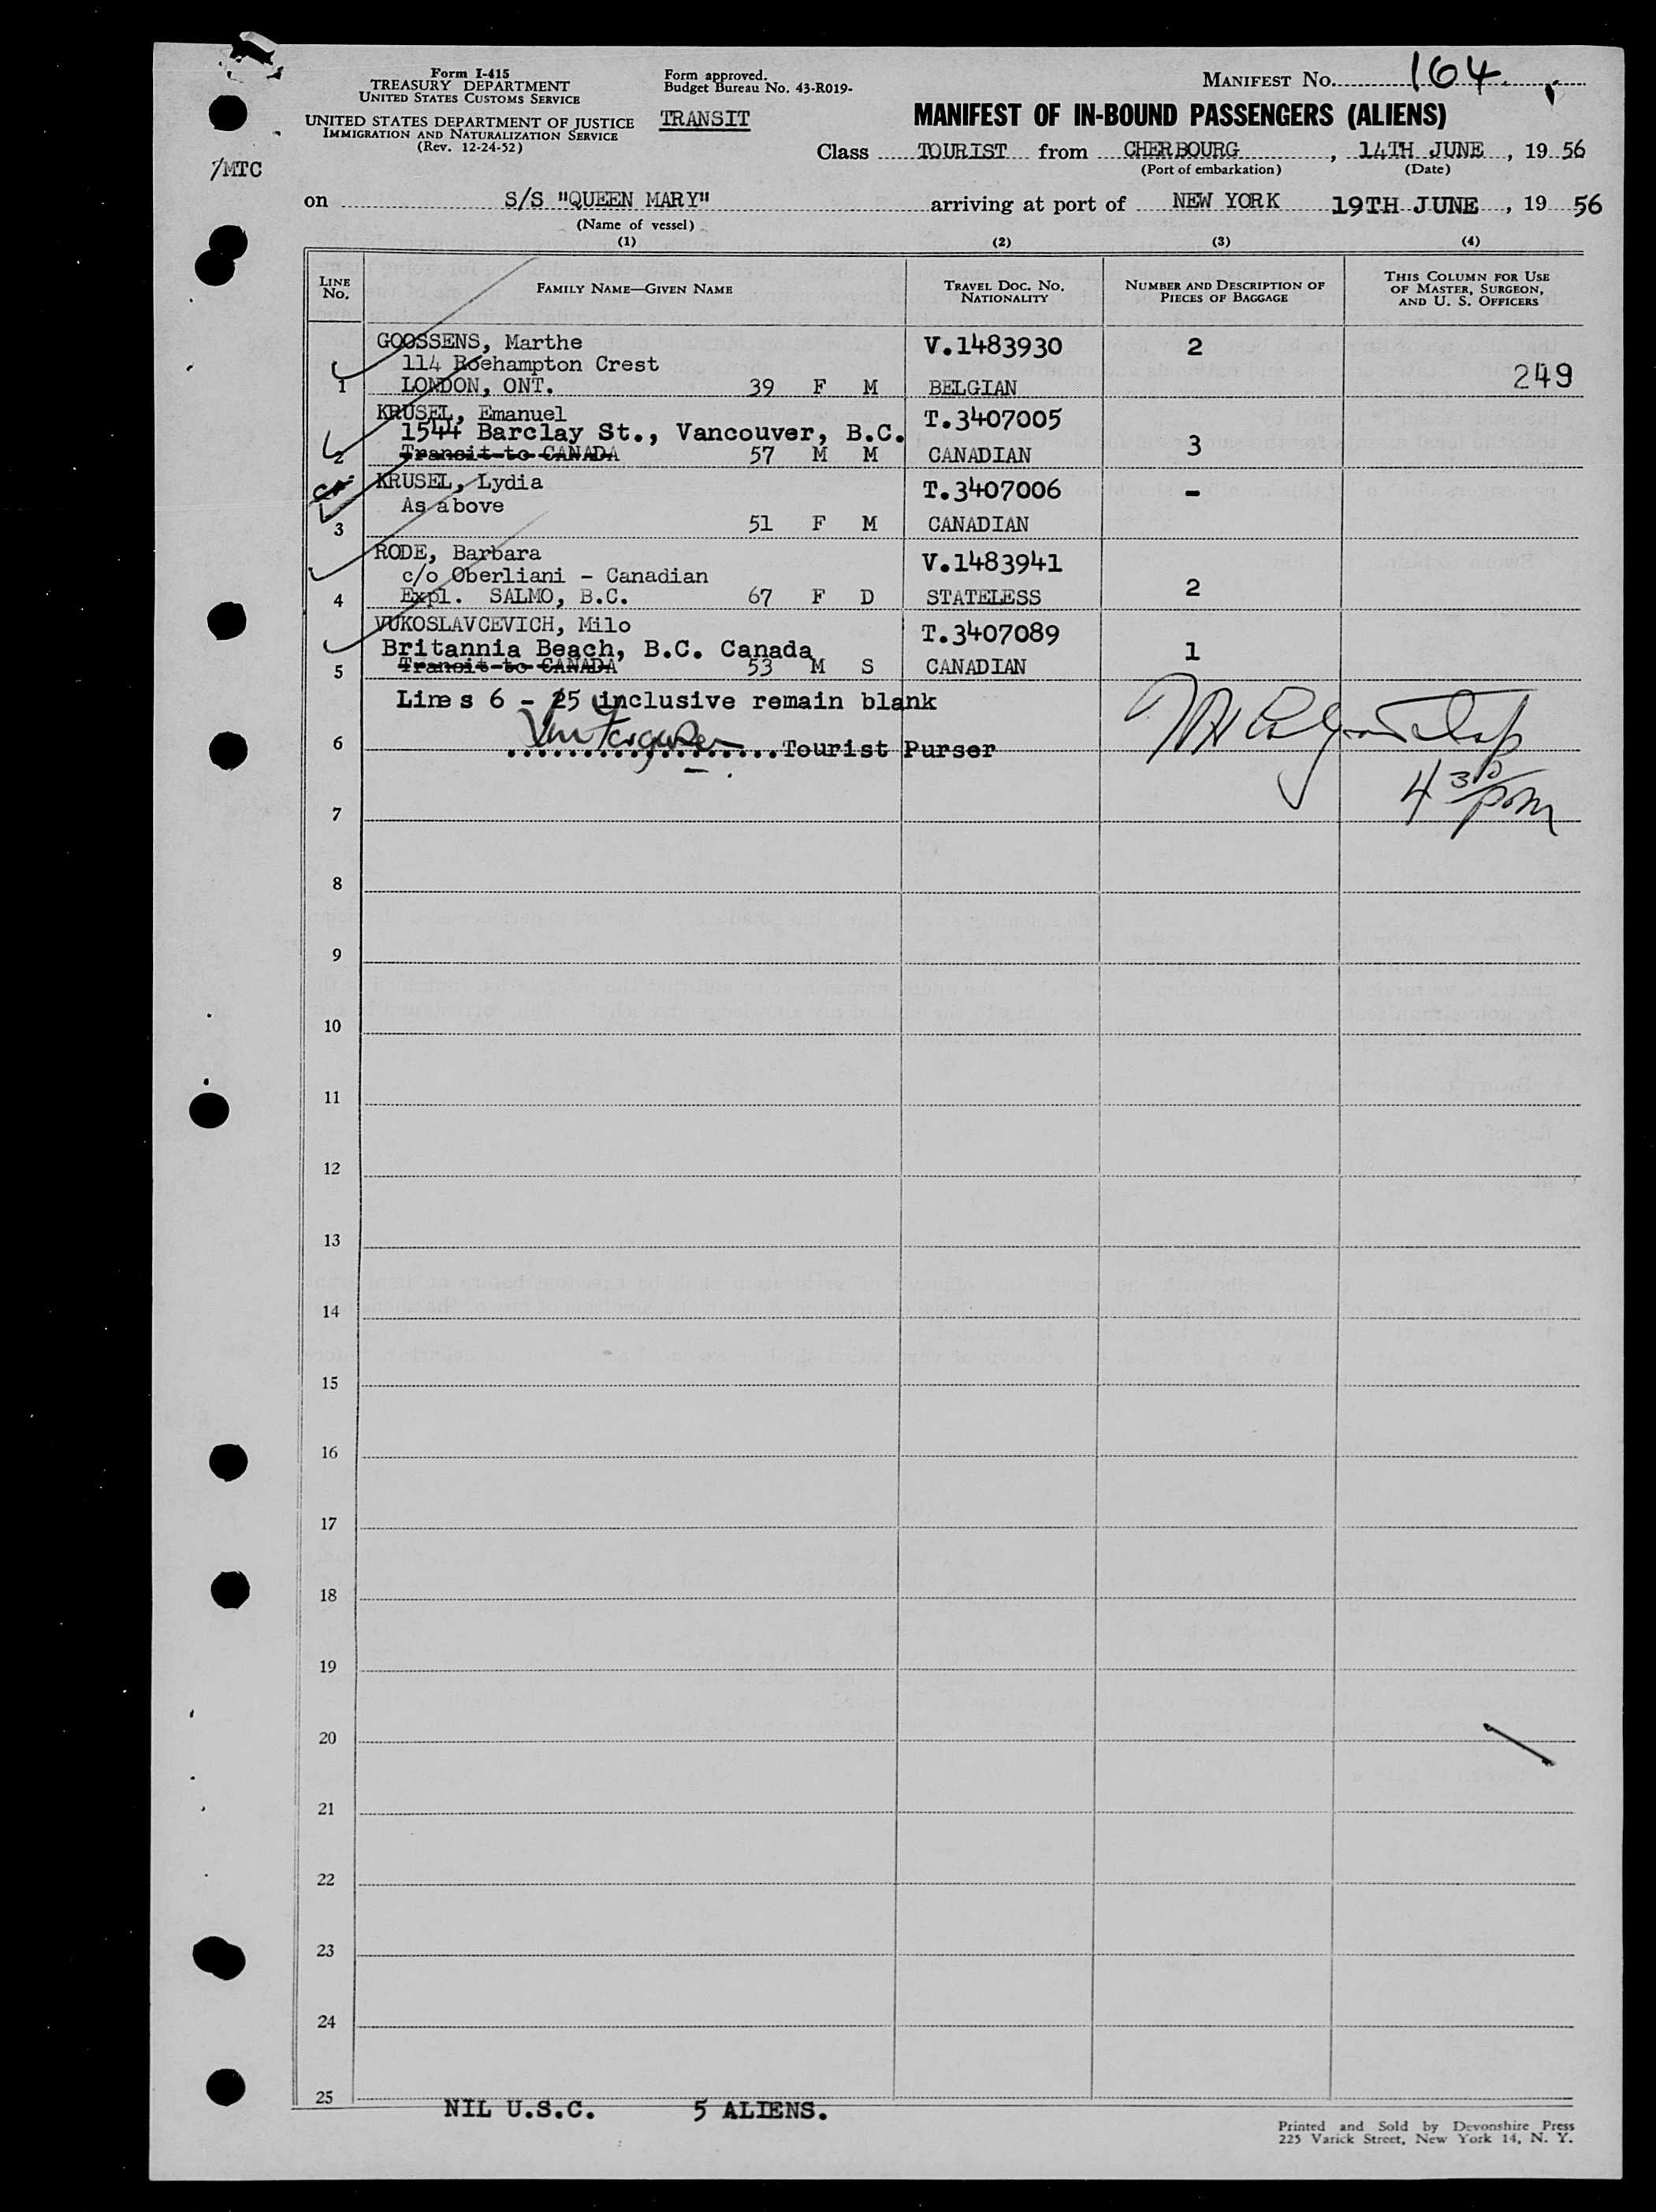 Form I-415
TREASURY DEPARTMENT
UNITED STATES CUSTOMS SERVICE
UNITED STATES DEPARTMENT OF JUSTICE
IMMIGRATION AND NATURALIZATION SERVICE
(Rev. 12-24-52)
Form approved.
Budget Bureau No. 43-R019-
TRANSIT
MANIFEST No. 164
MANIFEST OF IN-BOUND PASSENGERS (ALIENS)
/MTC
Class TOURIST from CHERBOURG, 14TH JUNE, 19 56
(Port of embarkation) (Date)
on S/S "QUEEN MARY" arriving at port of NEW YORK 19TH JUNE, 19 56
(Name of vessel)
(1) (2) (3) (4)
LINE No. FAMILY NAME—GIVEN NAME TRAVEL DOC. NO. NATIONALITY NUMBER AND DESCRIPTION OF PIECES OF BAGGAGE THIS COLUMN FOR USE OF MASTER, SURGEON, AND U. S. OFFICERS
GOOSSENS, Marthe V.1483930 2
114 Roehampton Crest 249
1 LONDON, ONT. 39 F M BELGIAN
KRUSEL, Emanuel T.3407005
1544 Barclay St., Vancouver, B.C. 3
2 Transit to CANADA 57 M M CANADIAN
KRUSEL, Lydia T.3407006 -
As above
3 51 F M CANADIAN
RODE, Barbara V.1483941
c/o Oberliani - Canadian 2
4 Expl. SALMO, B.C. 67 F D STATELESS
VUKOSLAVCEVICH, Milo T.3407089
Britannia Beach, B.C. Canada 1
5 Transit to CANADA 53 M S CANADIAN
Lines 6 - 25 inclusive remain blank
6 Tourist Purser
4 30 pm
7
8
9
10
11
12
13
14
15
16
17
18
19
20
21
22
23
24
25
NIL U.S.C. 5 ALIENS.
Printed and Sold by Devonshire Press
225 Varick Street, New York 14, N. Y.